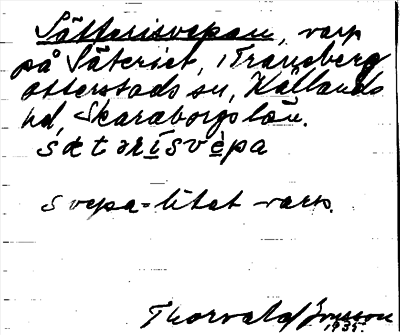 Sätterisvepan, varp
på Säteriet, Traneberg
Otterstads sn, Kållands
hd, Skaraborgs län.
sætərísvèpa
svepa = litet varp.
Thorvald Jonsson
1935.